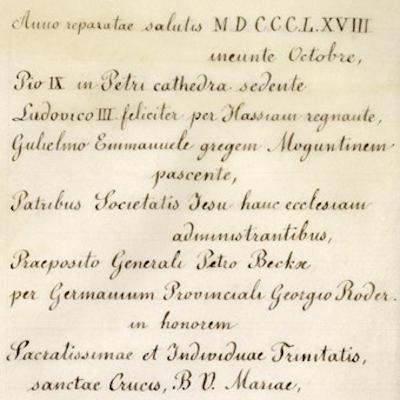 Anno reparatae salutis M D C C C.L.XVIII
ineunte Octobre,
Pio IX in Petri cathedra sedente
Ludovico III feliciter per Hassiam regnante,
Gulielmo Emmanuele gregem Moguntinem
pascente,
Patribus Societatis Jesu hanc ecclesiam
administrantibus,
Praeposito Generali Petro Beckx
per Germanium Provinciali Georgio Roder.
in honorem
Sacratissimae et Individuae Trinitatis,
sanctae Crucis, B V. Mariae,